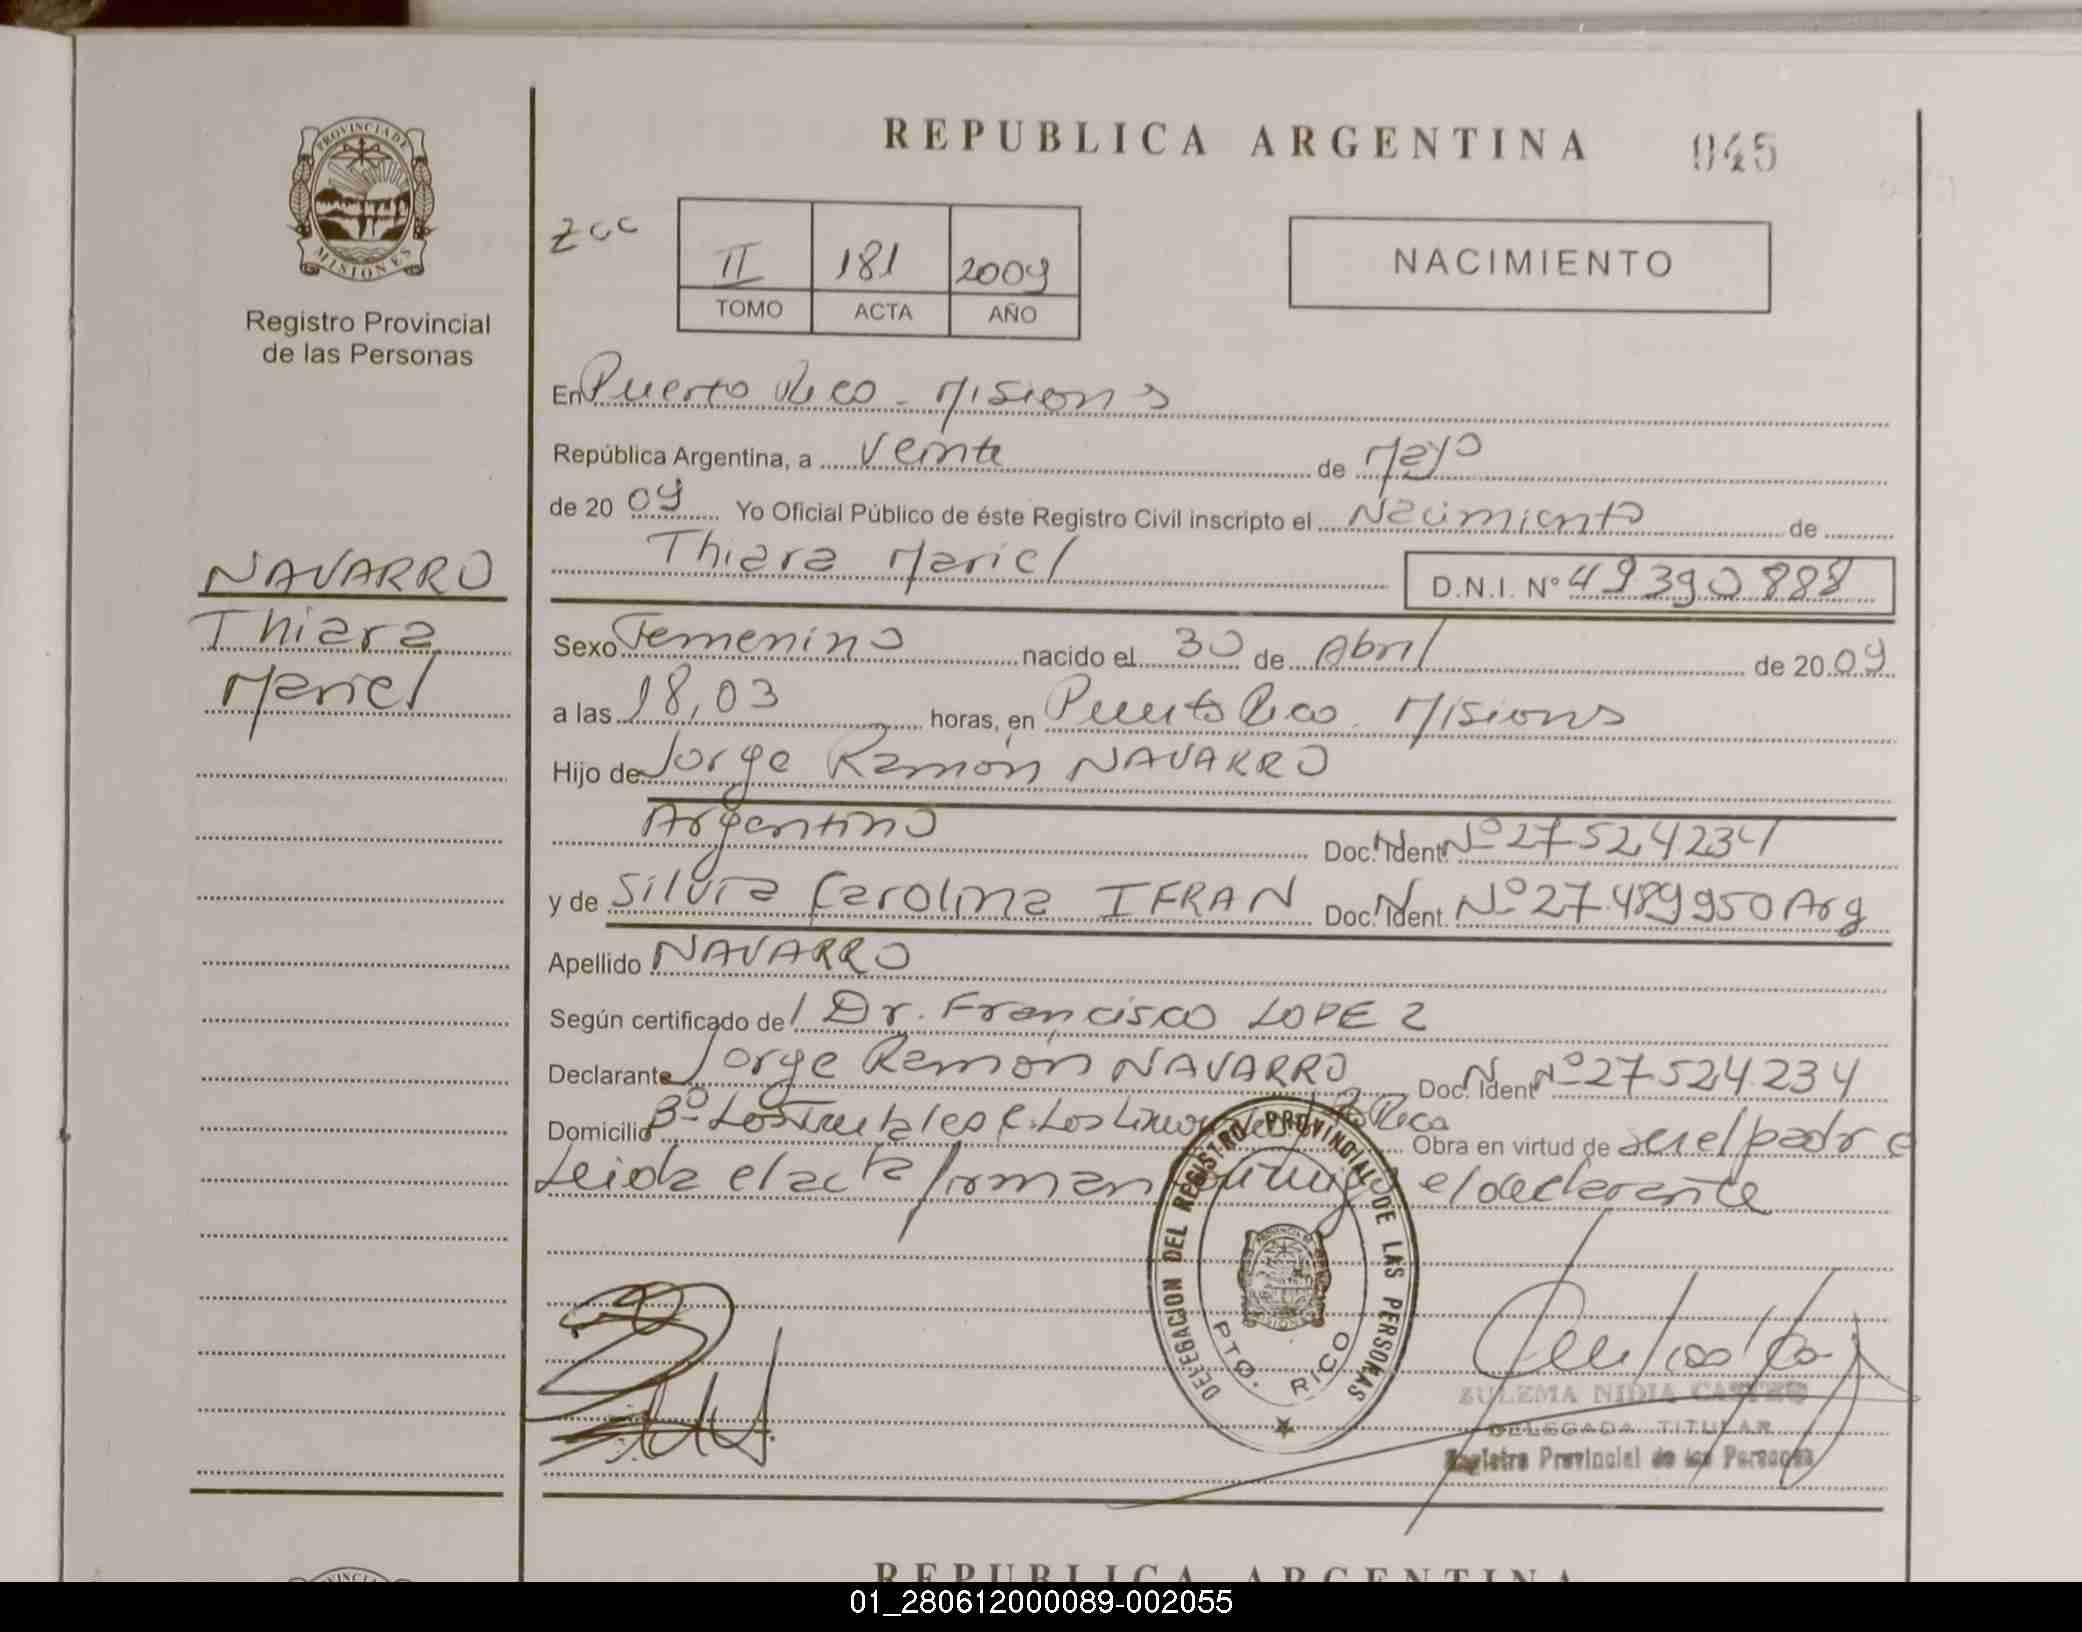 REPUBLICA ARGENTINA 045
PROVINCIA DE
MISIONES
Registro Provincial
de las Personas
zcc
II 181 2009
TOMO ACTA AÑO
NACIMIENTO
En Puerto Rico - Misiones
República Argentina, a Veinte de Mayo
de 20 09 Yo Oficial Público de éste Registro Civil inscripto el Nacimiento de
Thiara Mariel D.N.I. Nº 49390888
NAVARRO
Thiara
Mariel
Sexo Femenino nacido el 30 de Abril de 20 09
a las 18,03 horas, en Puerto Rico. Misiones
Hijo de Jorge Ramón NAVARRO
Argentino Doc. Ident. Nº 27524234
y de Silvia Carolina IFRAN Doc. Ident. Nº 27.489950 Arg
Apellido NAVARRO
Según certificado del Dr. Francisco LOPEZ
Declarante Jorge Ramón NAVARRO Doc. Ident Nº 27524234
Domicilio Bº Los C. Los Rico Obra en virtud de ser el padre
Leida el acta firman el declarante
DELEGACION DEL REGISTRO PROVINCIAL DE LAS PERSONAS
PTO. RICO
ZULEMA NIDIA
DELEGADA TITULAR
Registro Provincial de las Personas
REPUBLICA ARGENTINA
01_280612000089-002055